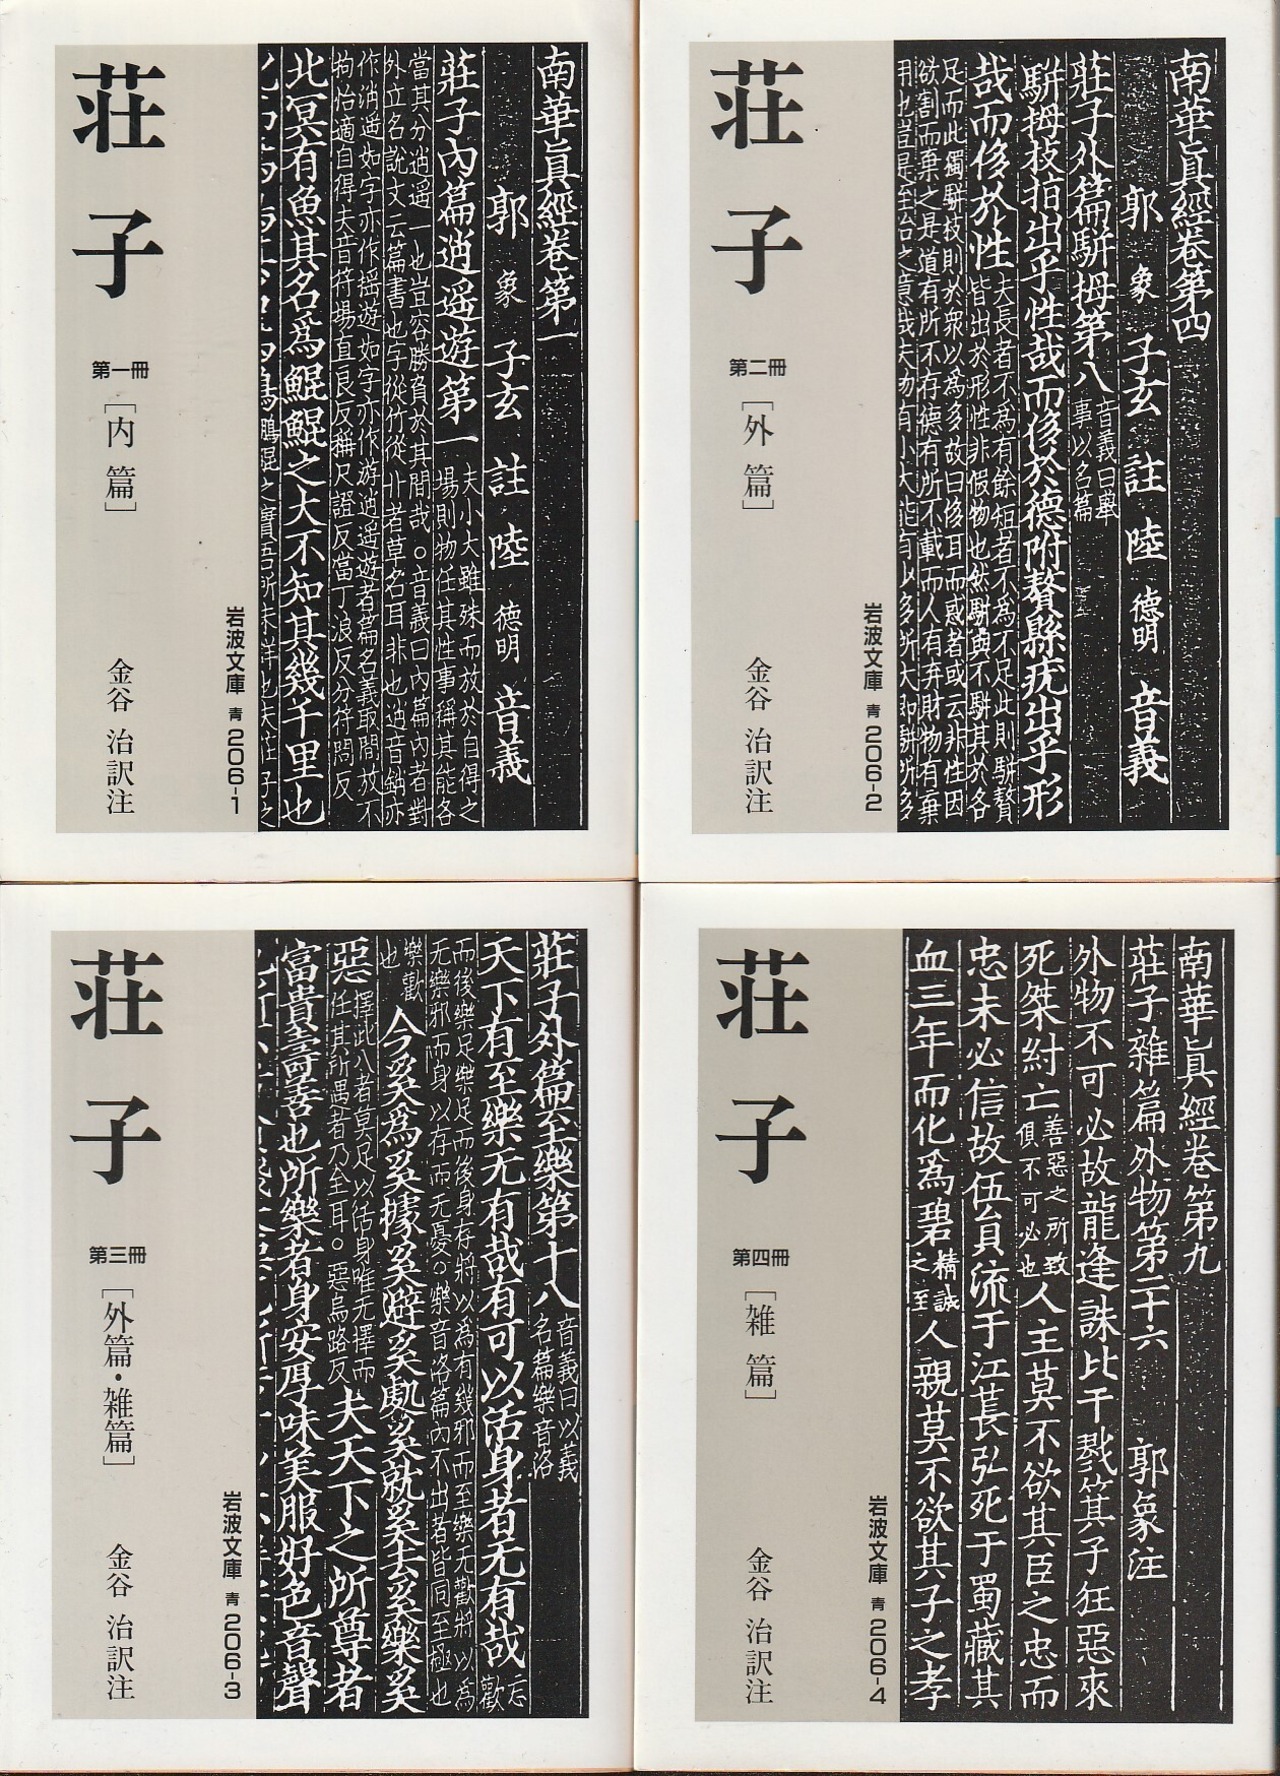 荘子
第一冊
[内篇]
金谷 治訳注
岩波文庫 青 206-1
南華眞經卷第一
郭象子玄註陸德明音義
莊子內篇逍遥遊第一
夫小大雖殊而放於自得之
場則物任其性事稱其能各
當其分逍遥一也豈容勝負於其間哉。音義曰內篇內者對
外立名說文云篇書也字從竹從艸者草名耳非也逍音銷亦
作消遥如字亦作揺遊如字亦作游逍遥遊者篇名義取閒放不
拘怡適自得夫音符場直良反稱尺證反當丁浪反分符問反
北冥有魚其名爲鯤鯤之大不知其幾千里也
荘子
第二冊
[外篇]
金谷 治訳注
岩波文庫 青 206-2
南華眞經卷第四
郭象子玄註陸德明音義
莊子外篇駢拇第八
音義曰舉
事以名篇
駢拇枝指出乎性哉而侈於德附贅縣疣出乎形
哉而侈於性
夫長者不爲有餘短者不爲不足此則駢贅
皆出於形性非假物也然駢與不駢其於各
足而此獨駢枝則於衆以爲多故曰侈耳而惑者或云非性因
欲割而棄之是道有所不存德有所不載而人有弃財物有棄
用也豈是至治之意哉夫物有小大能有少多所大即駢所多
荘子
第三冊
[外篇・雑篇]
金谷 治訳注
岩波文庫 青 206-3
莊子外篇至樂第十八
音義曰以義
名篇樂音洛
天下有至樂无有哉有可以活身者无有哉
忘
歡
而後樂足樂足而後身存將以爲有幾邪而至樂无歡將以爲
无樂邪而身以存而无憂。樂音洛篇內不出者皆同至極也
樂歡
也
今奚爲奚據奚避奚處奚就奚去奚樂奚
惡
擇此八者莫足以活身唯无擇而
任其所遇者乃全耳。惡烏路反
夫天下之所尊者
富貴壽善也所樂者身安厚味美服好色音聲
荘子
第四冊
[雑篇]
金谷 治訳注
岩波文庫 青 206-4
南華眞經卷第九
莊子雜篇外物第二十六 郭象注
外物不可必故龍逢誅比干戮箕子狂惡來
死桀紂亡
善惡之所致
俱不可必也
人主莫不欲其臣之忠而
忠未必信故伍員流于江萇弘死于蜀藏其
血三年而化爲碧
精誠
之至
人親莫不欲其子之孝